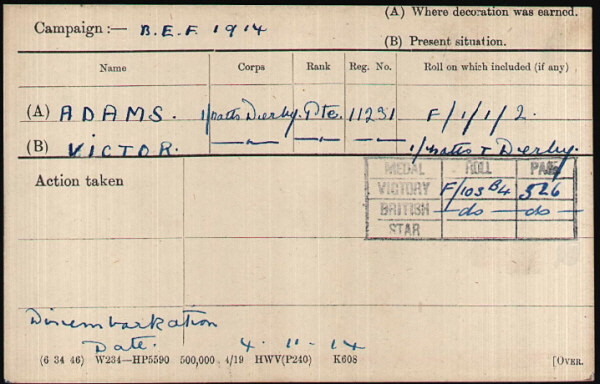 (A) Where decoration was earned.
Campaign:— B.E.F. 1914
(B) Present situation.
Name Corps Rank Reg. No. Roll on which included (if any)
(A) ADAMS. 1/Notts Derby. Pte. 11231 F/1/1/2.
(B) VICTOR. —"— —"— 1/Notts & Derby.
Action taken
MEDAL ROLL PAGE
VICTORY F/103 B4 526
BRITISH —do— —do—
STAR
Disembarkation
Date. 4. 11. 14
(6 34 46) W234—HP5590 500,000 4/19 HWV(P240) K608 [OVER.